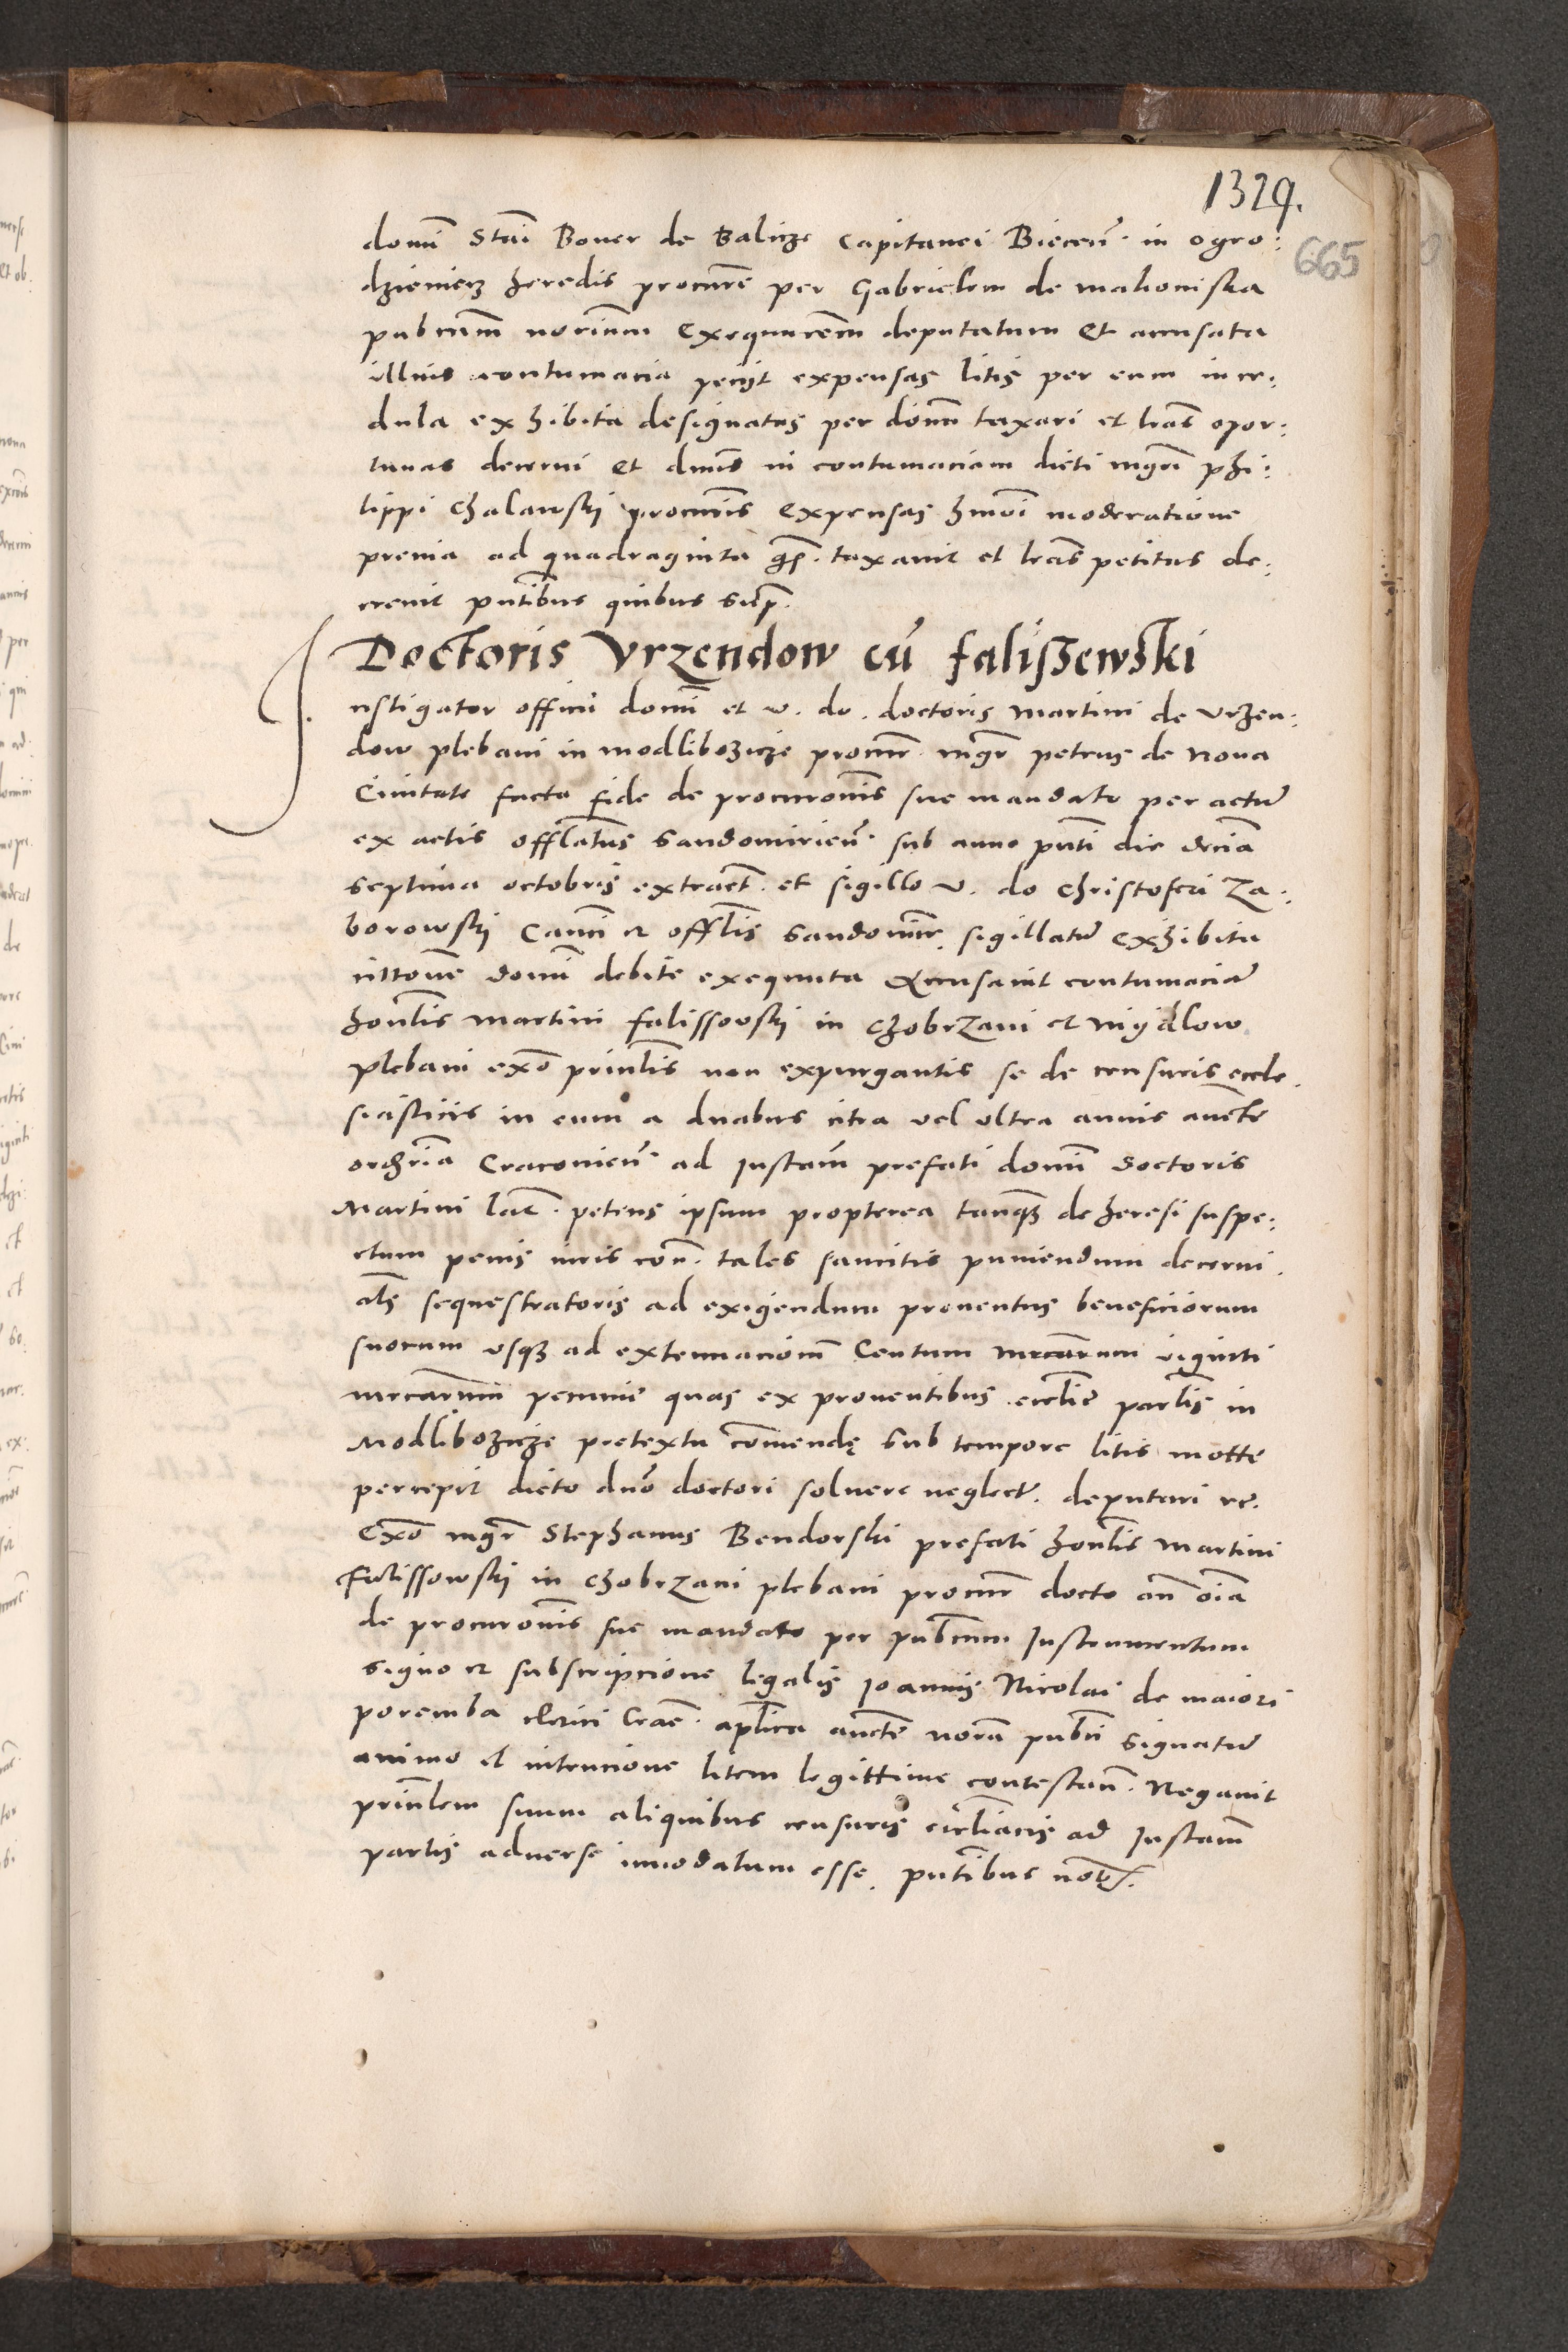 1329.
665
domi Stai Boner de Balicze Capitanei Biecen̄. in ogro:
dzieniecz heredis procurē per Gabrielem de malioniska
pubcum norium Exequucem deputatum Et accusata
illius contumacia petijt expensas litis per eum in ce:
dula exhibita designatas per domn taxari et lras opor:
tunas decerni Et dmis in contumaciam dicti mgri phi:
lippi Chalawski procuris Expensas hmoi moderatione
previa ad quadraginta gs. taxavit et lras petitas de:
crevit pntibus quibus sup.
Doctoris Vrzendow cū faliszewski
Instigator officii domi et v. do. doctoris Martini de vrzen:
dow plebani in modlibozicze procur mgr petrus de nova
Civitate facta fide de procuronis sue mandato per actū
ex actis offlatus Sandomirien̄ sub anno pnti die decia
septima octobris extract. et sigillo v. do Christoferi Za:
borowski Canci et offlis Sandomir. sigillatū Exhibita
cittone domi debite exequuta Accusavit contumaciā
honlis Martini falissowski in Chobrzani et nigdlow
plebani exo princlis non expurgantis se de censuris eccle
siasticis in eum a duabus citra vel ultra annis aucte
ordria Cracovien̄ ad Instam prefati domi doctoris
Martini lat. petens ipsum propterea tanqz de heresi suspe:
ctum penis iuris con. tales sancitis puniendum decerni.
als sequestratoris ad exigendum proventus beneficiorum
suorum usqz ad extenuacionē Centum mrcarum viginti
mrcarum pecunie quas ex proventibus ecclie parlis in
Modlibozicze pretextu comendę sub tempore litis motte
percepit dicto dno doctori solvere neglect. deputari rc.
Exo mgr Stephanus Bendorski prefati honlis Martini
Falissowski in Chobrzani plebani procur docto an oia
de procuronis sue mandato per pubcum Instrumentum
signo et subscripcione legalis Joannis Nicolai de maiori
poremba clerici Crac. aplica aucte nora publi signatū
animo et intencione litem legittime contestan. Negavit
princlem suum aliquibus censuris eccliacis ad Instam
partis adverse innodatum esse. pntibus notis.